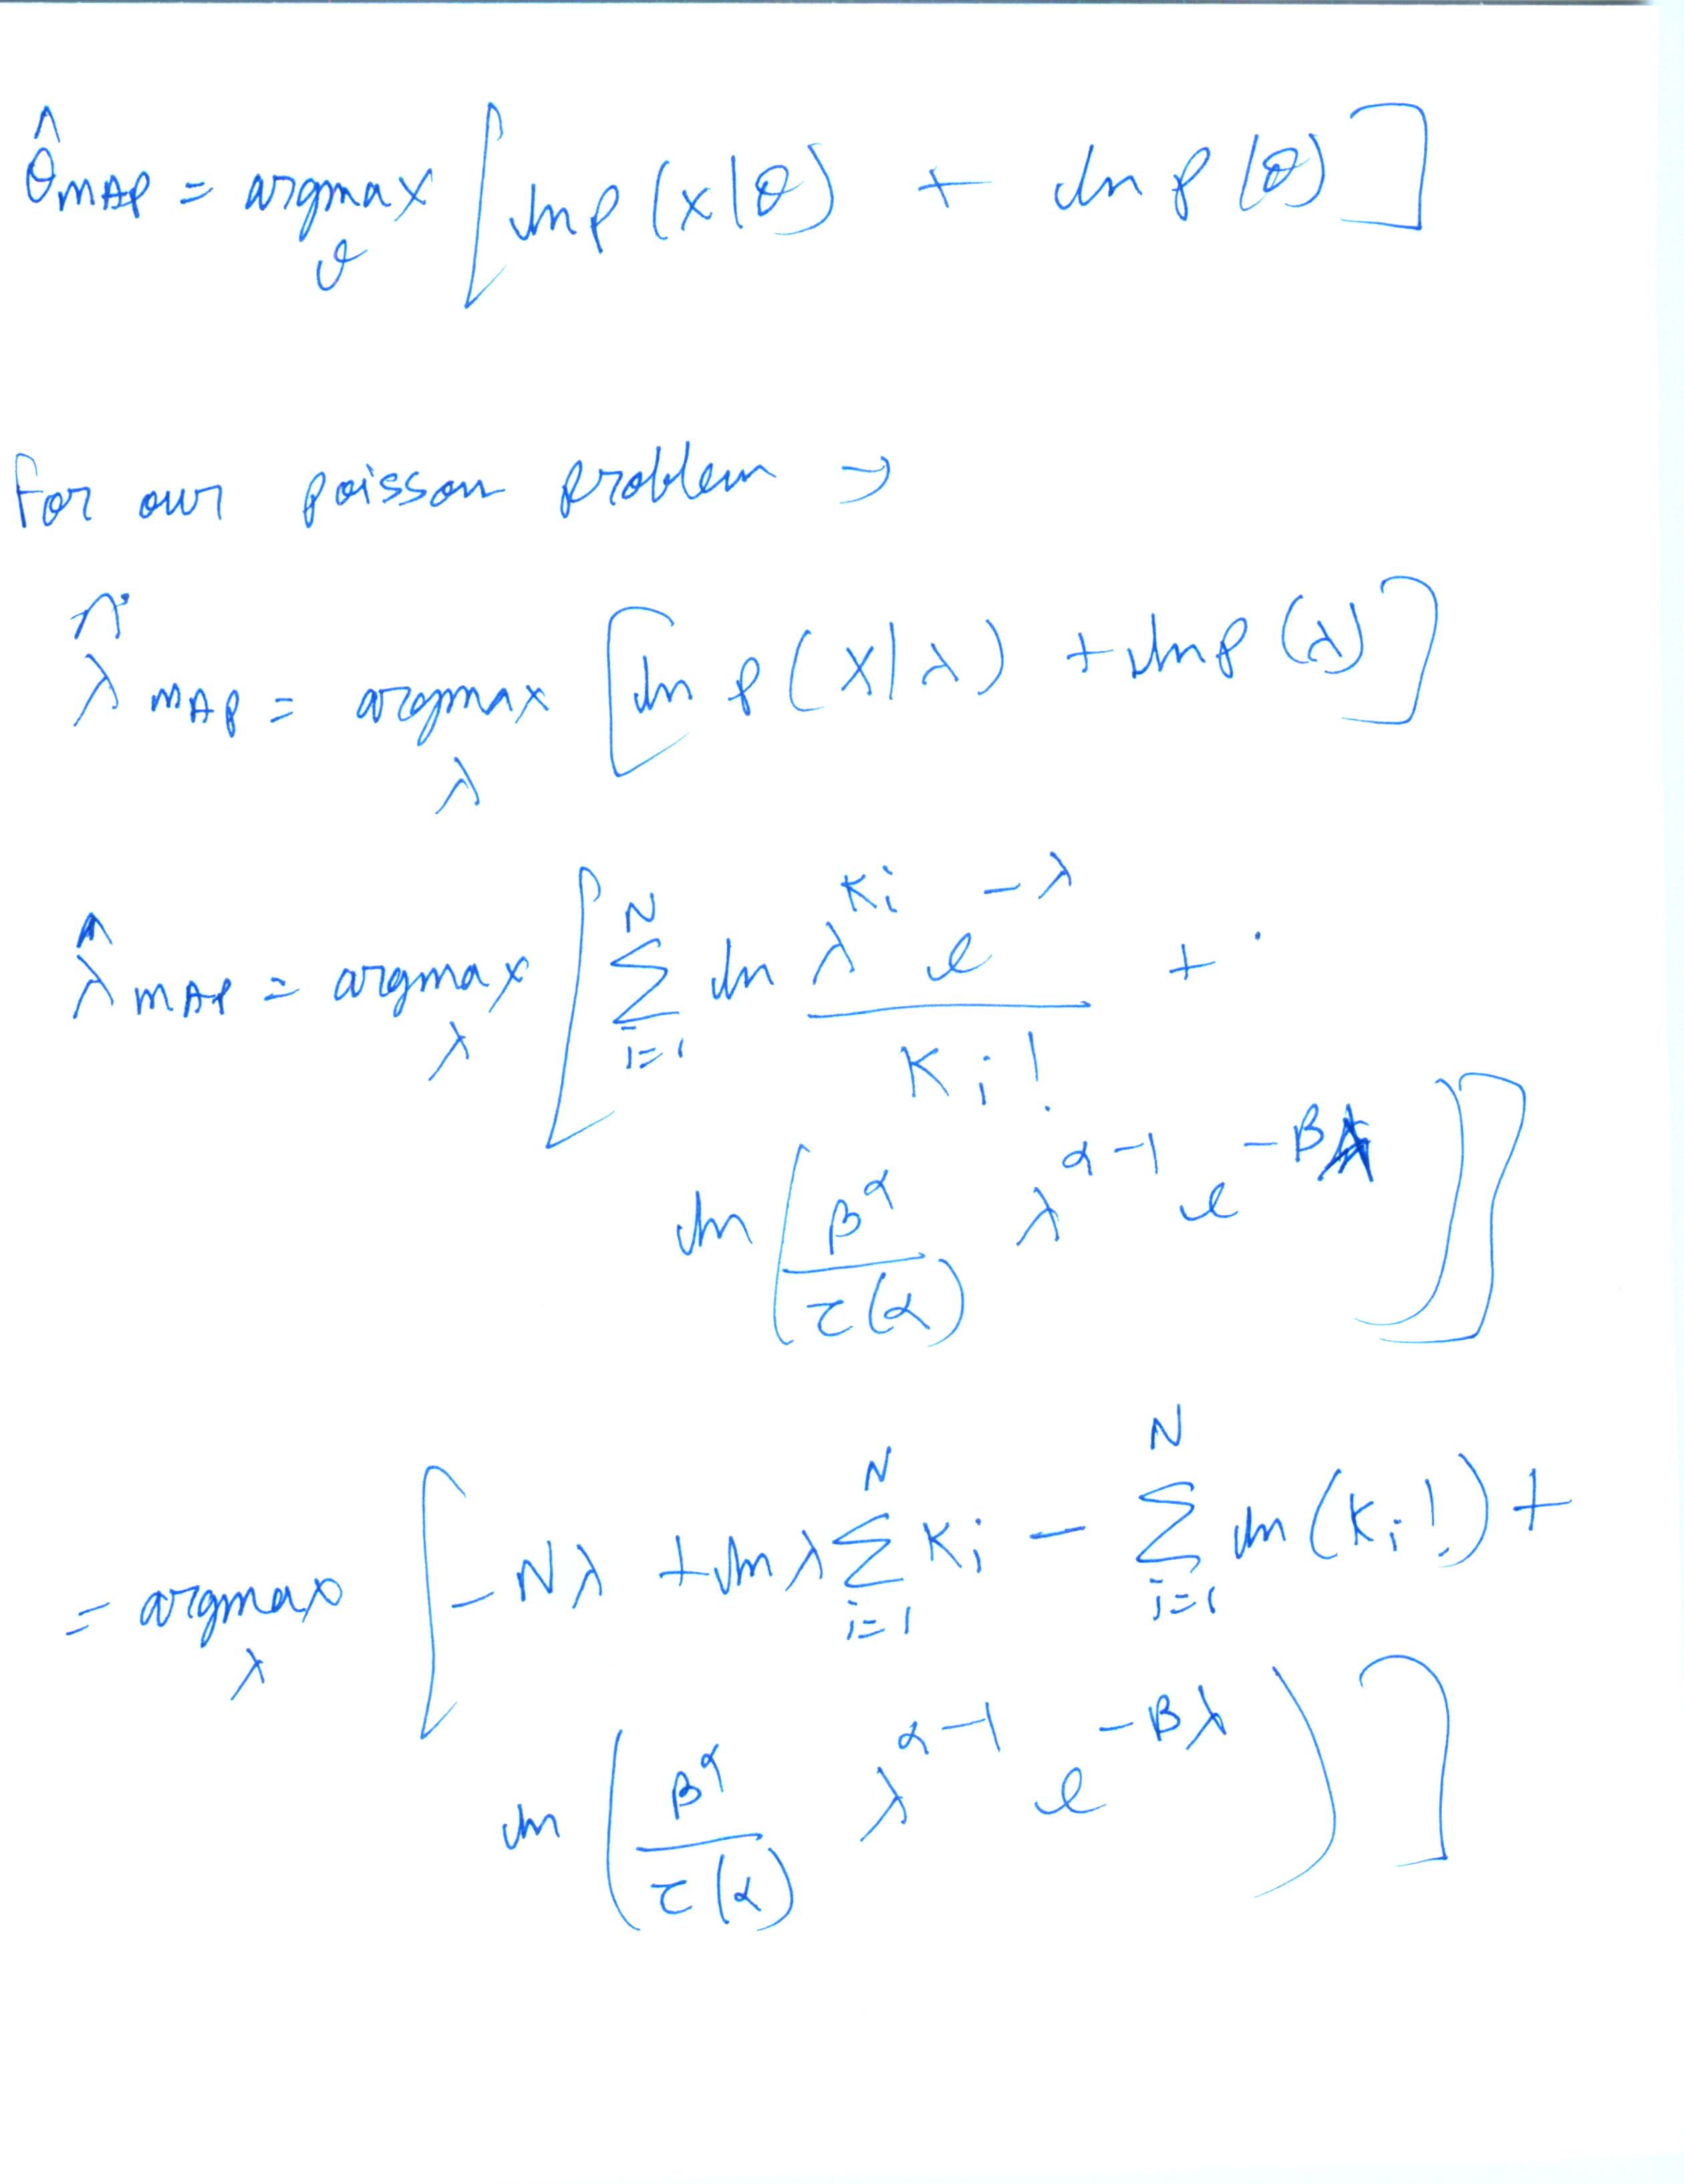 θ̂ MAP = argmax_θ [ ln p(x|θ) + ln p(θ) ]
For our poisson problem →
λ̂ MAP = argmax_λ [ ln p(X|λ) + ln p(λ) ]
λ̂ MAP = argmax_λ [ Σ_{i=1}^{N} ln (λ^{Ki} e^{-λ} / Ki!) +
ln ( β^α / τ(α) λ^{α-1} e^{-βλ} ) ]
= argmax_λ [ -Nλ + ln λ Σ_{i=1}^{N} Ki - Σ_{i=1}^{N} ln(Ki!) +
ln ( β^α / τ(α) λ^{α-1} e^{-βλ} ) ]